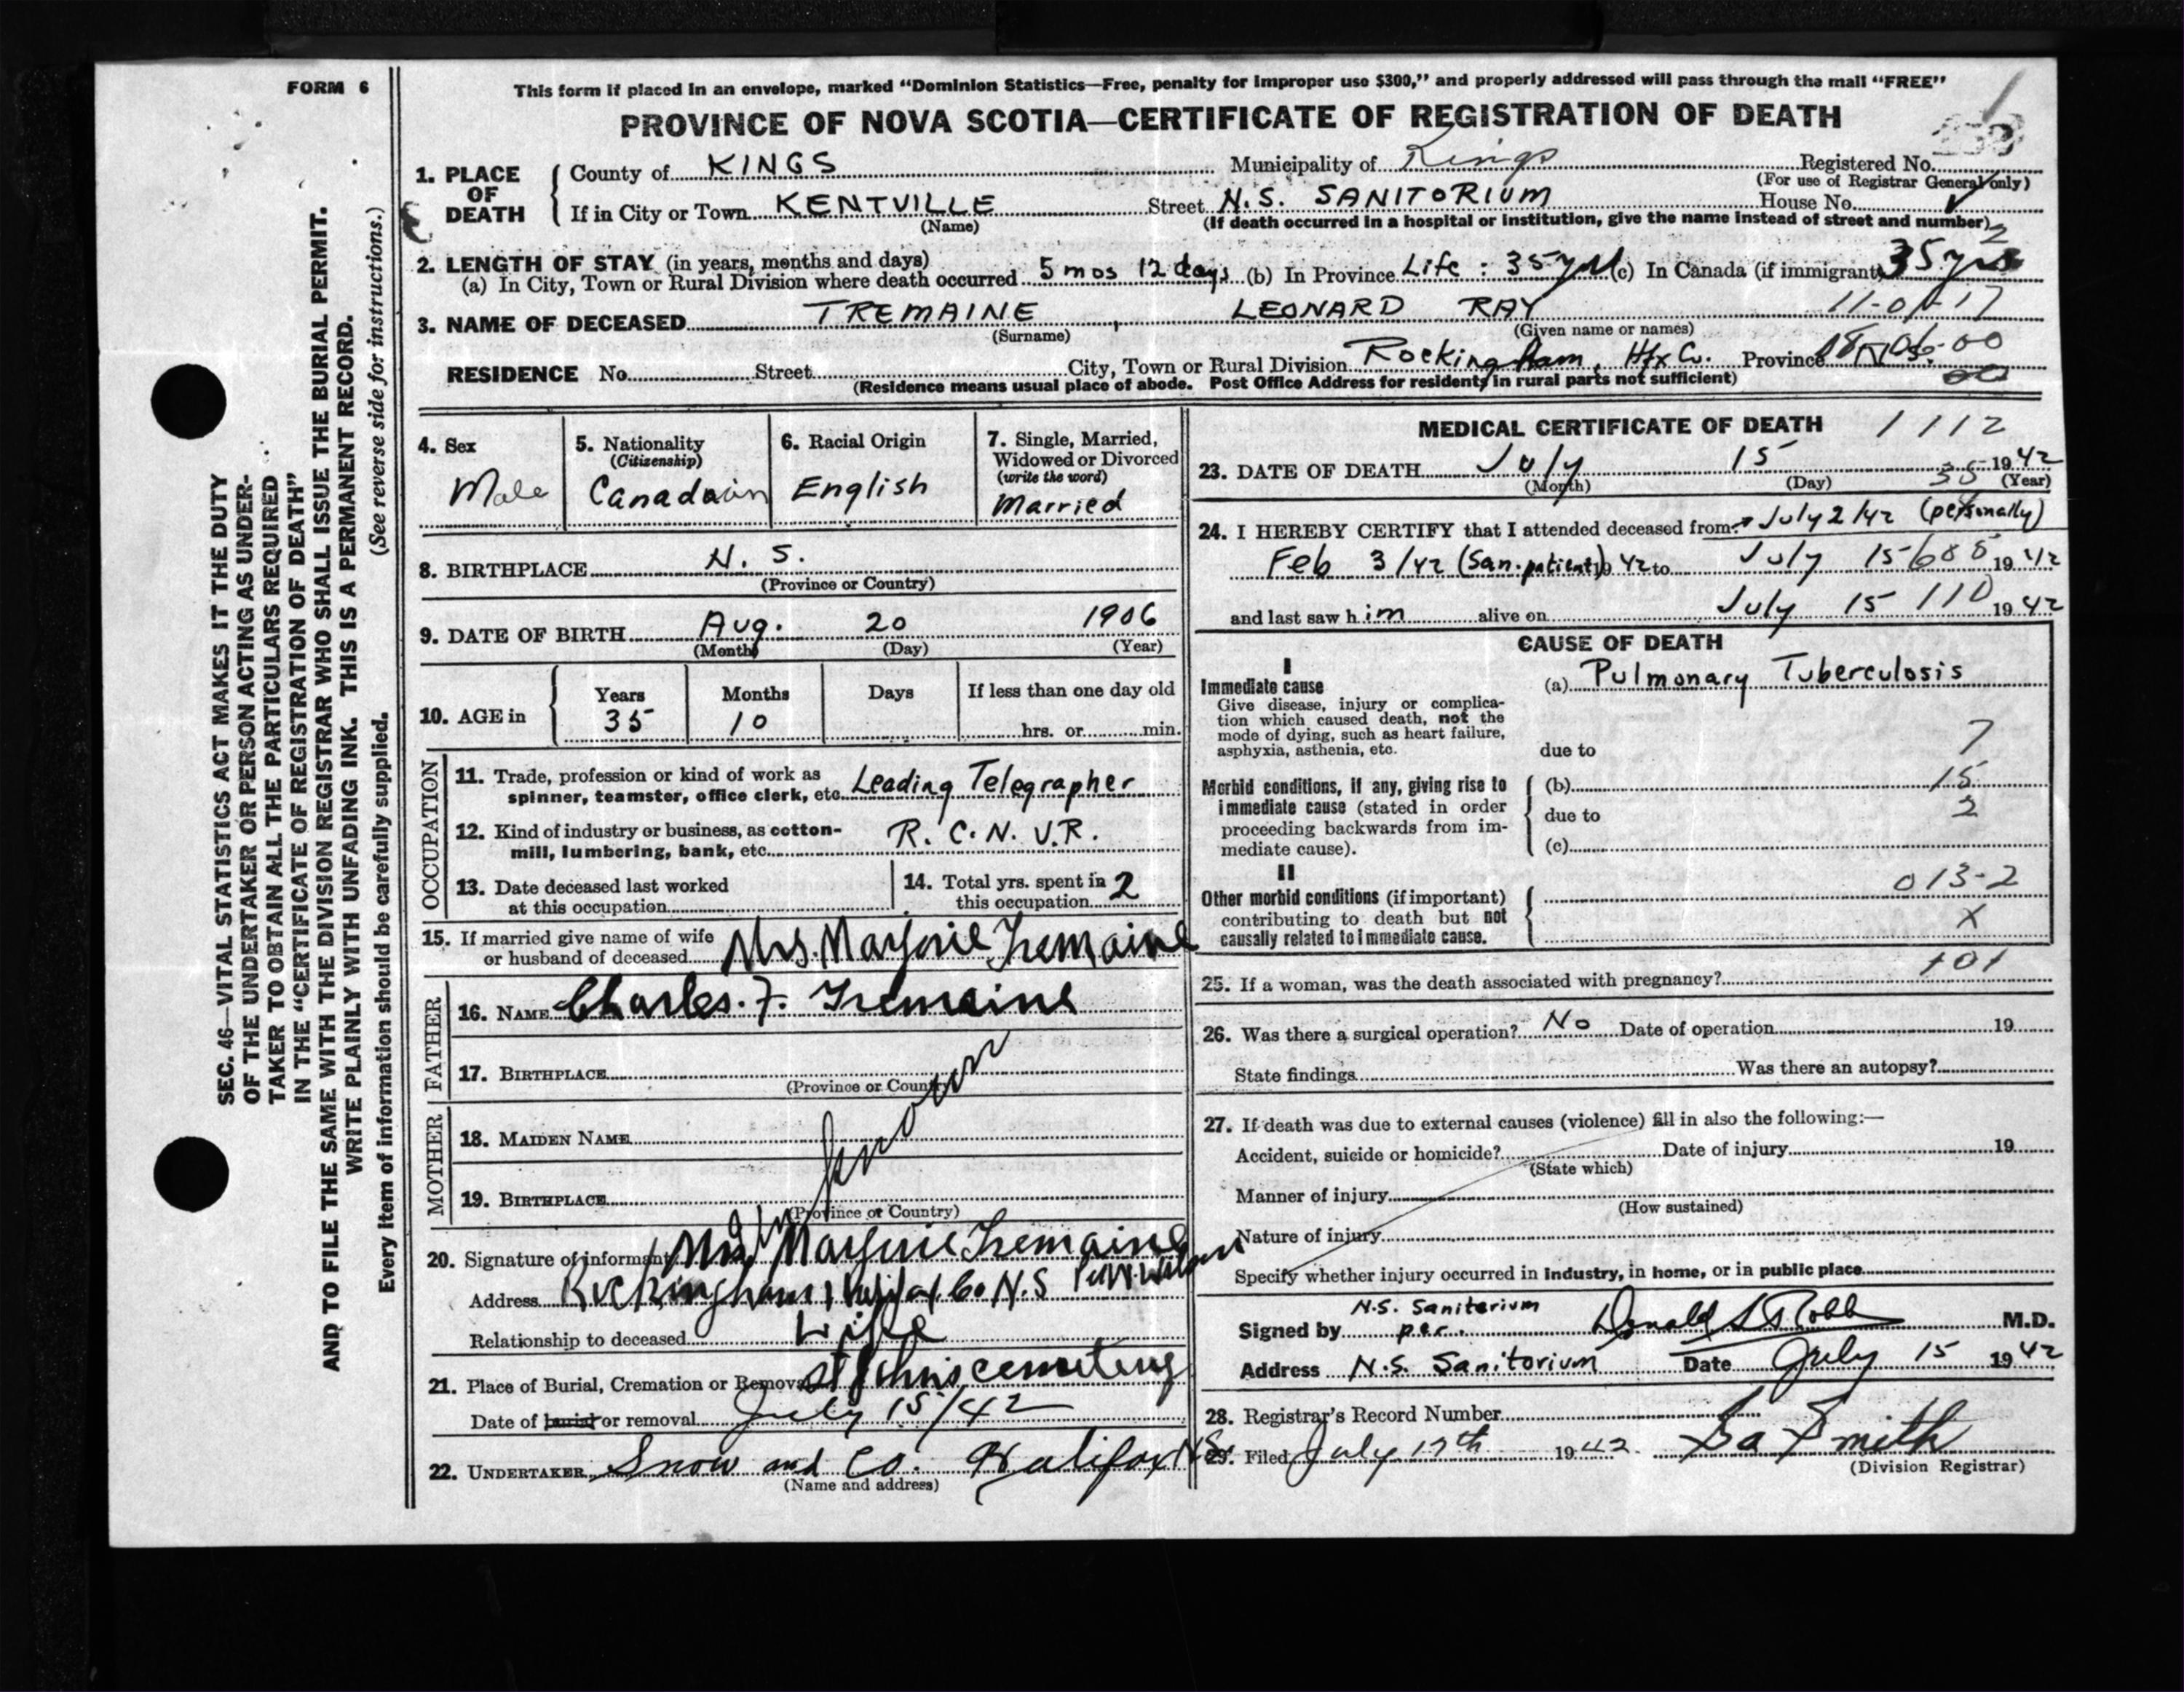 FORM 6
This form if placed in an envelope, marked “Dominion Statistics—Free, penalty for improper use $300,” and properly addressed will pass through the mail “FREE”
PROVINCE OF NOVA SCOTIA—CERTIFICATE OF REGISTRATION OF DEATH
1. PLACE OF DEATH
County of KINGS Municipality of Kings Registered No.
(For use of Registrar General only)
If in City or Town KENTVILLE Street N.S. SANITORIUM House No.
(Name) (If death occurred in a hospital or institution, give the name instead of street and number)
2. LENGTH OF STAY (in years, months and days)
(a) In City, Town or Rural Division where death occurred 5 mos 12 days (b) In Province Life : 35 yrs (c) In Canada (if immigrant) 35 yrs
3. NAME OF DECEASED TREMAINE , LEONARD RAY
(Surname) (Given name or names)
RESIDENCE No. Street City, Town or Rural Division Rockingham, Hfx Co. Province N.S.
(Residence means usual place of abode. Post Office Address for residents in rural parts not sufficient)
4. Sex
Male
5. Nationality
(Citizenship)
Canadain
6. Racial Origin
English
7. Single, Married, Widowed or Divorced
(write the word)
Married
8. BIRTHPLACE N. S.
(Province or Country)
9. DATE OF BIRTH Aug. 20 1906
(Month) (Day) (Year)
10. AGE in
Years Months Days If less than one day old
35 10 hrs. or min.
OCCUPATION
11. Trade, profession or kind of work as
spinner, teamster, office clerk, etc. Leading Telegrapher
12. Kind of industry or business, as cotton-
mill, lumbering, bank, etc. R. C. N. V. R.
13. Date deceased last worked
at this occupation
14. Total yrs. spent in
this occupation 2
15. If married give name of wife
or husband of deceased Mrs. Marjorie Tremaine
FATHER
16. NAME Charles. F. Tremaine
17. BIRTHPLACE
(Province or Country)
MOTHER
18. MAIDEN NAME
19. BIRTHPLACE
(Province or Country)
20. Signature of informant Mrs Marjorie Tremaine
Address Rockingham Halifax Co N.S
Relationship to deceased Wife
21. Place of Burial, Cremation or Removal St Johns cemetery
Date of burial or removal July 15/42
22. UNDERTAKER Snow and Co. Halifax N.S.
(Name and address)
MEDICAL CERTIFICATE OF DEATH 1112
23. DATE OF DEATH July 15 1942
(Month) (Day) (Year)
24. I HEREBY CERTIFY that I attended deceased from July 2/42 (personally)
Feb 3/42 (San. patient) 42 to July 15 1942
and last saw him alive on July 15 110 1942
CAUSE OF DEATH
I
Immediate cause
Give disease, injury or complica-
tion which caused death, not the
mode of dying, such as heart failure,
asphyxia, asthenia, etc.
(a) Pulmonary Tuberculosis
7
due to
Morbid conditions, if any, giving rise to
immediate cause (stated in order
proceeding backwards from im-
mediate cause).
(b) 15
due to 2
(c)
II
Other morbid conditions (if important)
contributing to death but not
causally related to immediate cause.
013-2
X
25. If a woman, was the death associated with pregnancy?
26. Was there a surgical operation? No Date of operation 19
State findings Was there an autopsy?
27. If death was due to external causes (violence) fill in also the following:—
Accident, suicide or homicide? Date of injury 19
(State which)
Manner of injury
(How sustained)
Nature of injury
Specify whether injury occurred in industry, in home, or in public place
N.S. Sanitorium
Signed by per. Donald S Robb M.D.
Address N.S. Sanitorium Date July 15 1942
28. Registrar's Record Number
29. Filed July 17th 1942 Smith
(Division Registrar)
SEC. 46—VITAL STATISTICS ACT MAKES IT THE DUTY
OF THE UNDERTAKER OR PERSON ACTING AS UNDER-
TAKER TO OBTAIN ALL THE PARTICULARS REQUIRED
IN THE “CERTIFICATE OF REGISTRATION OF DEATH”
AND TO FILE THE SAME WITH THE DIVISION REGISTRAR WHO SHALL ISSUE THE BURIAL PERMIT.
WRITE PLAINLY WITH UNFADING INK. THIS IS A PERMANENT RECORD.
(See reverse side for instructions.)
Every item of information should be carefully supplied.